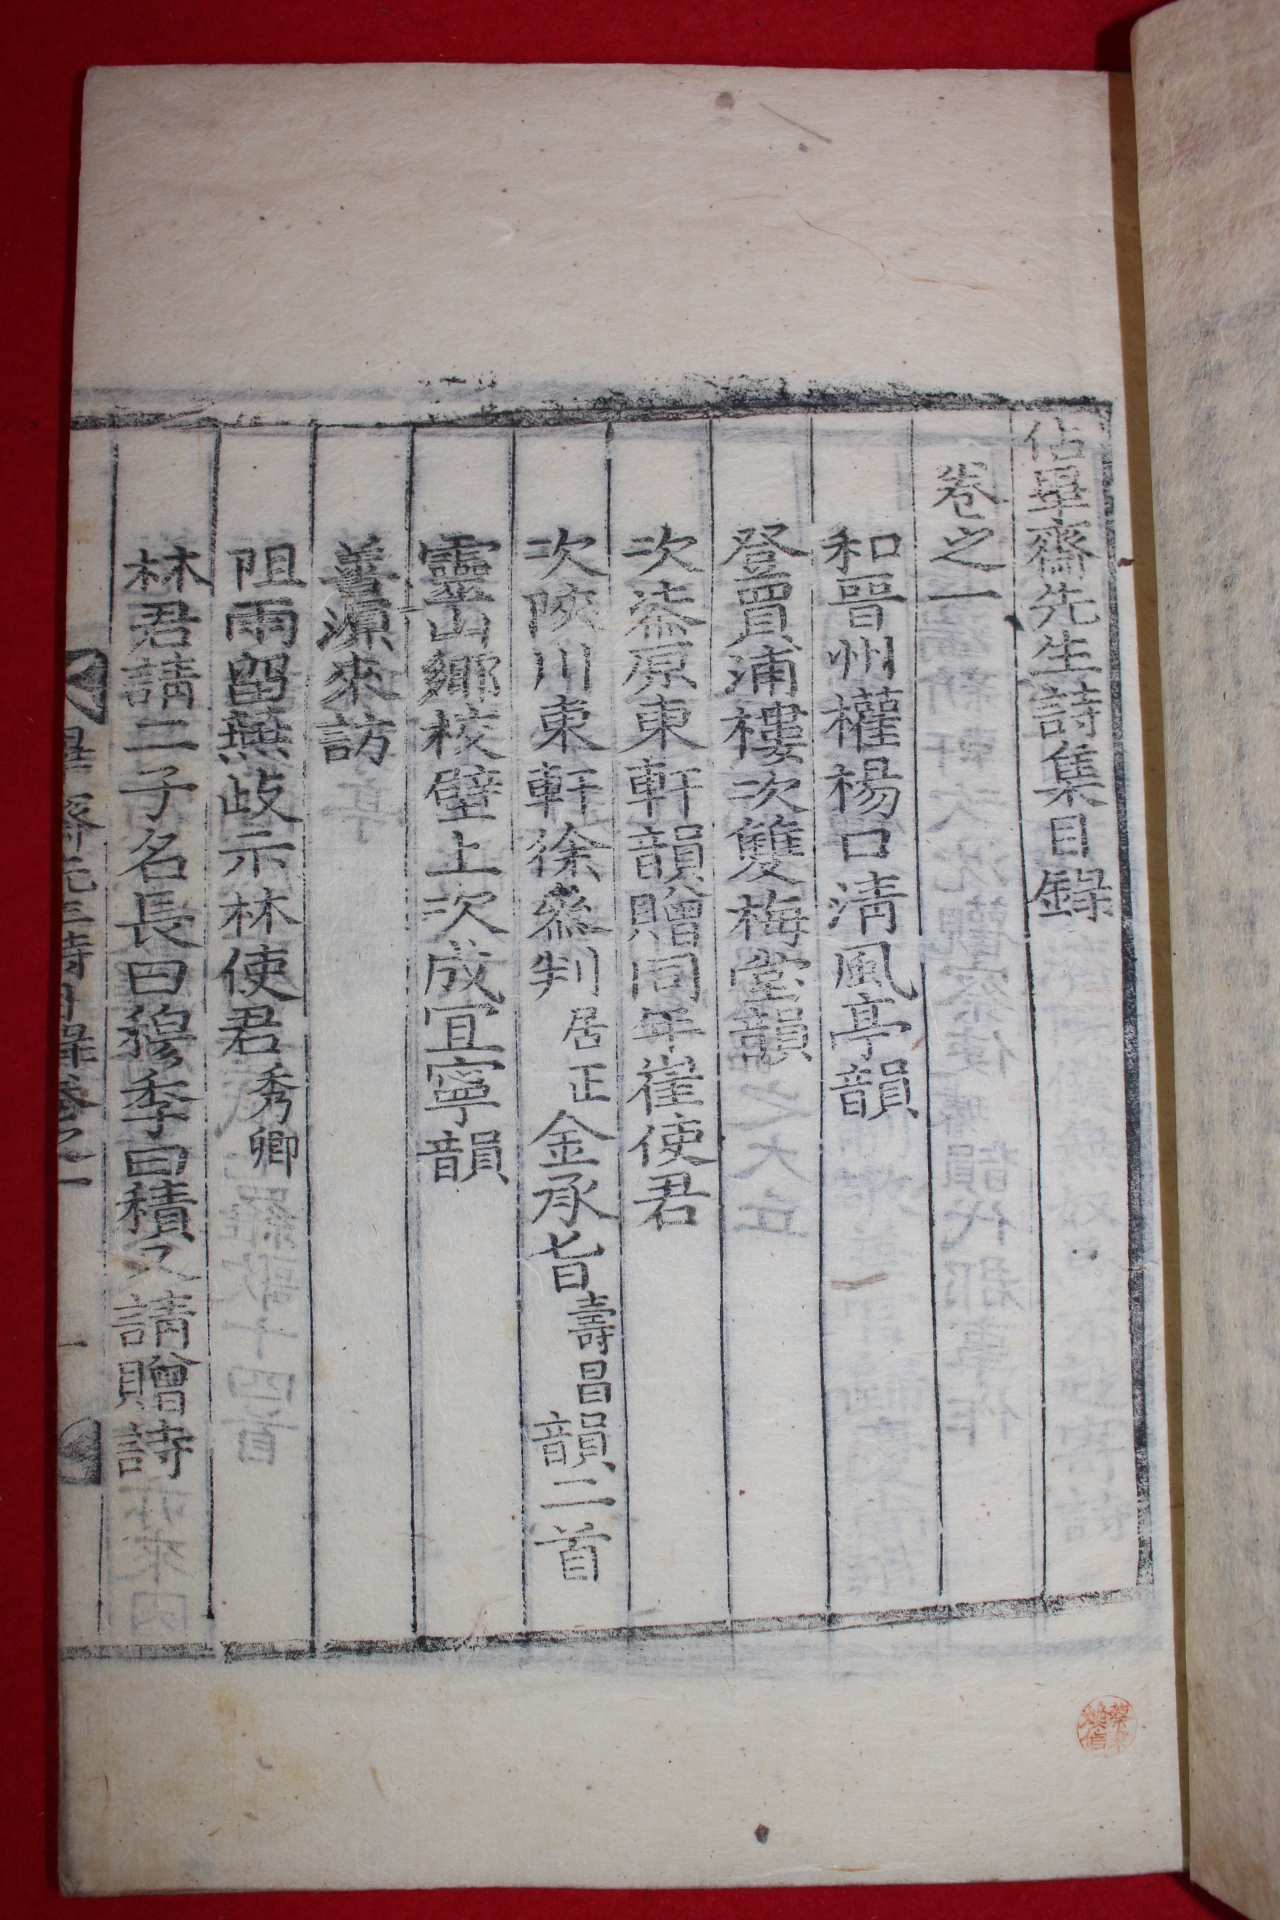 佔畢齋先生詩集目錄
卷之一
和晉州權楊口清風亭韻
登買浦樓次雙梅堂韻
次柒原東軒韻贈同年崔使君
次陜川東軒徐叅判居正金承旨壽昌韻二首
靈山鄉校壁上次成宜寧韻
善源來訪
阻雨留蕪歧示林使君秀卿
林君請二子名長曰穆季曰積又請贈詩
畢齋先生詩目錄卷之一
一